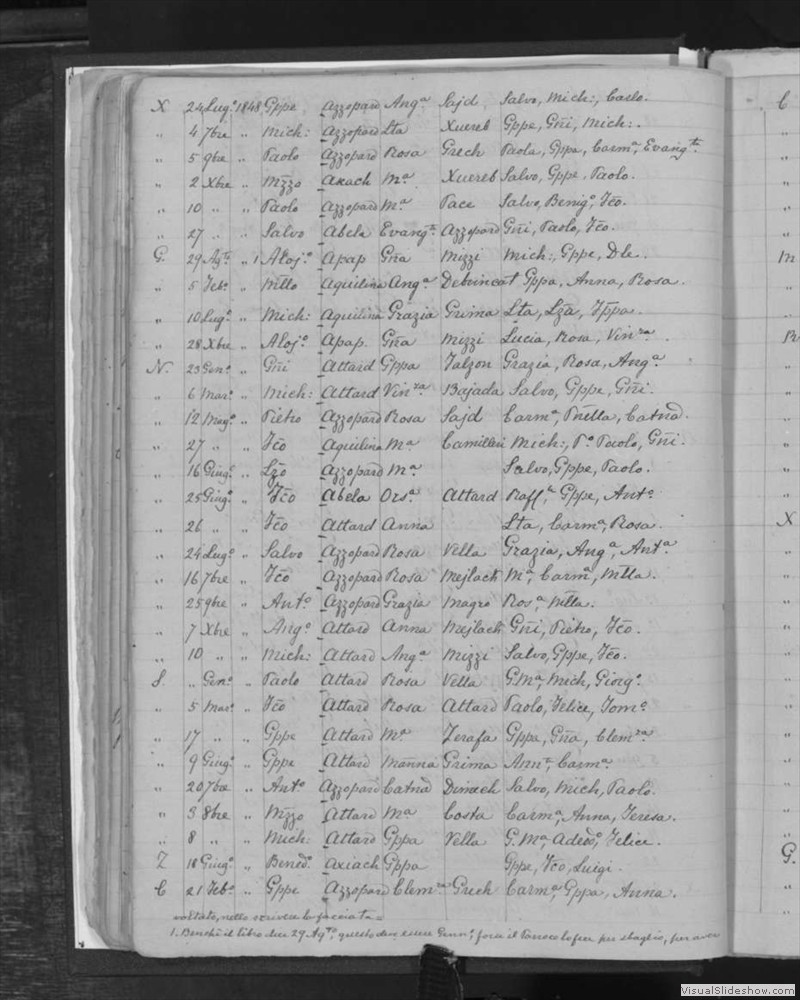 X 24 Lug.º 1848 Gppe Azzopard Ang.ª Sajd Salvo, Mich:, Carlo.
„ 4 7bre „ Mich: Azzopard Lta Xuereb Gppe, Gñi, Mich:.
„ 5 9bre „ Paolo Azzopard Rosa Grech Paola, Gppa, Carm.ª, Evang.ta
„ 2 Xbre „ Mzzo Axach M.ª Xuereb Salvo, Gppe, Paolo.
„ 10 „ „ Paolo Azzopard M.ª Pace Salvo, Benig.º, Fcõ.
„ 27 „ „ Salvo Abela Evang.ta Azzopard Gñi, Paolo, Fcõ.
G. 29 Ag.to „ 1 Aloj.º Apap Gña Mizzi Mich:, Gppe, Dle.
„ 5 Feb.º „ Mtto Aquilina Ang.ª Debrincat Gppa, Anna, Rosa.
„ 10 Lug.º „ Mich: Aquilina Grazia Grima Lta, Lzã,
„ 28 Xbre „ Aloj.º Apap. Gña Mizzi Lucia, Rosa, Vin.za
N. 23 Gen.º „ Gñi Attard Gppa Falzon Grazia, Rosa, Ang.ª
„ 6 Mar.º „ Mich: Attard Vin.za Bajada Salvo, Gppe, Gñi.
„ 12 Mag.º „ Pietro Azzopard Rosa Sajd Carm.ª, Catnã.
„ 27 „ „ Fcõ Aquilina M.ª Camilleri Mich:, P.º Paolo, Gñi.
„ 16 Giug.º „ Lzõ Azzopard M.ª Salvo, Gppe, Paolo.
„ 25 Giug.º „ Fcõ Abela Ors.ª Attard Raff.le, Gppe, Ant.º
„ 26 „ „ Fcõ Attard Anna Lta, Carm.ª, Rosa.
„ 24 Lug.º „ Salvo Azzopard Rosa Vella Grazia, Ang.ª, Ant.ª
„ 16 7bre „ Fcõ Azzopard Rosa Mejlach M.ª, Carm.ª, Mtta.
„ 25 9bre „ Ant.º Azzopard Grazia Magro Ros.ª, Mtta.
„ 7 Xbre „ Ang.º Attard Anna Mejlach Gñi, Pietro, Fcõ.
„ 10 „ „ Mich: Attard Ang.ª Mizzi Salvo, Gppe, Fcõ.
S. „ Gen.º „ Paolo Attard Rosa Vella G.M.ª, Mich, Giorg.º
„ 5 Mar.º „ Fcõ Attard Rosa Attard Paolo, Felice, Tom.º
„ 17 „ „ Gppe Attard M.ª Zerafa Gppe, Gña, Clem.za
„ 9 Giug.º „ Gppe Attard Marina Grima Carm.ª
„ 20 7bre „ Ant.º Azzopard Catnã Dimech Salvo, Mich, Paolo.
„ 3 8bre „ Mzzo Attard M.ª Costa Carm.ª, Anna, Teresa.
„ 8 „ „ Mich: Attard Gppa Vella G.M.ª, Adeod.º, Felice.
Z 18 Giug.º „ Bened.º Axiach Gppa Gppe, Fcõ, Luigi.
C 21 Feb.º „ Gppe Azzopard Clem.za Grech Carm.ª, Gppa, Anna.
voltato, nello scrivere la facciata=
1. Benchè il libro dice 29 Ag.to, questo deve essere Genn.º, forse il Parroco lo fece per sbaglio, per aver
VisualSlideshow.com